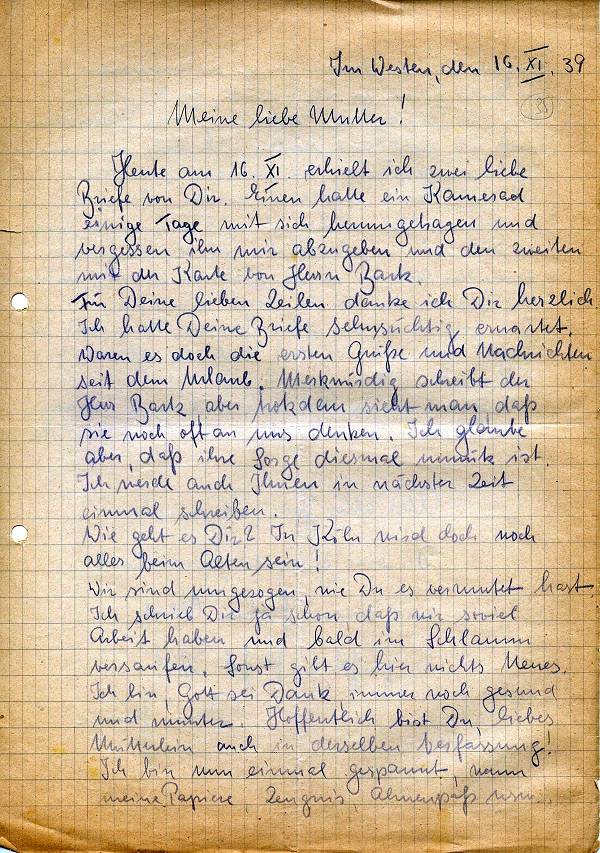 Im Westen, den 16. XI. 39
35
Meine liebe Mutter!
Heute am 16. XI. erhielt ich zwei liebe
Briefe von Dir. Einen hatte ein Kamerad
einige Tage mit sich herumgetragen und
vergessen ihn mir abzugeben und den zweiten
mit der Karte von Herrn Bark.
Für Deine lieben Zeilen danke ich Dir herzlich.
Ich hatte Deine Briefe sehnsüchtig erwartet,
waren es doch die ersten Grüße und Nachrichten
seit dem Urlaub. Merkwürdig schreibt der
Herr Bark aber trotzdem sieht man, daß
sie noch oft an uns denken. Ich glaube
aber, daß ihre Sorge diesmal unnütz ist.
Ich werde auch Ihnen in nächster Zeit
einmal schreiben.
Wie geht es Dir? In Köln wird doch noch
alles beim Alten sein!
Wir sind umgezogen, wie Du es vermutet hast.
Ich schrieb Dir ja schon daß wir soviel
Arbeit haben und bald im Schlamm
versaufen. Sonst gibt es hier nichts Neues.
Ich bin, Gott sei Dank immer noch gesund
und munter. Hoffentlich bist Du, liebes
Mütterlein auch in derselben Verfassung!
Ich bin nun einmal gespannt, wann
meine Papiere, Zeugnis, Ahnenpaß usw..